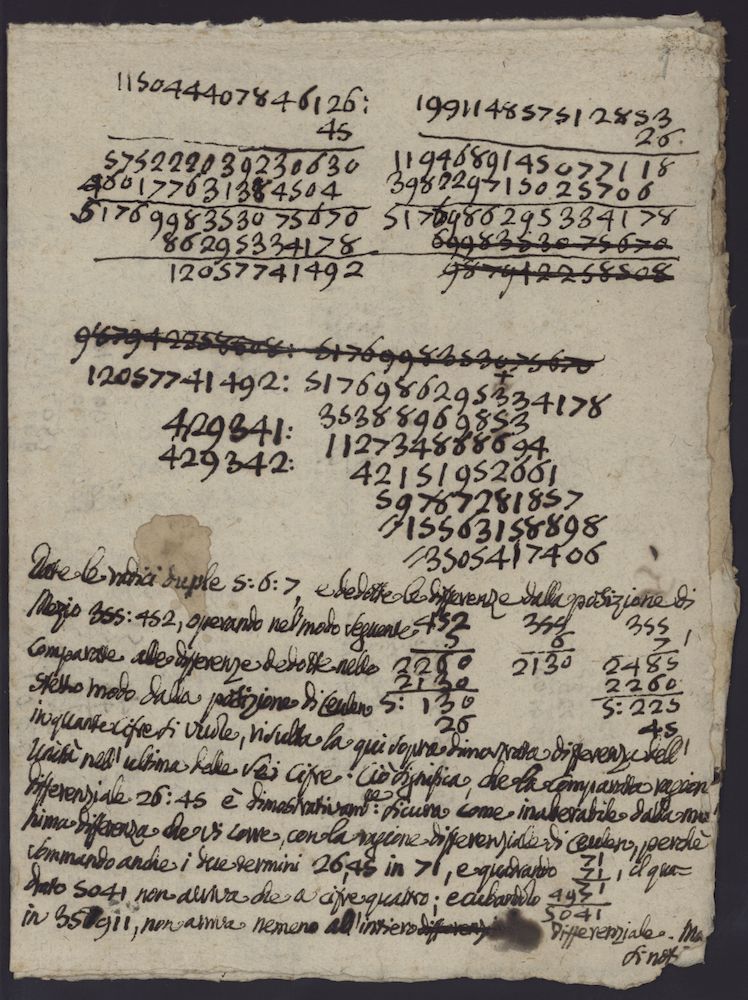 1150444078 46126:
45
5752220392 30630
460177631384504
5176998353075670
86295334178
12057741492
199114857512853
26.
1194689145077118
398229715025706
5176986295334178
12057741492: 5176986295334178
429341: 35388969853
429342: 1127348888694
42151952661
59787281857
715563158898
73505417406
Date le radici duple 5: 6: 7, e dedotte le differenze dalla posizione di
Mezio 355: 452, operando nel modo seguente 452 355 355
5 6 7
comparate alle differenze dedotte nello 2260 2130 2485
2130 2260
stesso modo dalla posizione di Ceulen 5: 130 5: 225
26 45
in quante cifre si vuole, risulta la qui sopra dimostrata differenza dell'
unità nell'ultima delle sei cifre: Ciò significa, che la comparata ragion
differenziale 26: 45 è dimostrativam.te sicura come inalterabile dalla mi
nima differenza che vi corre, con la ragione differenziale di Ceulen, perchè
sommando anche i due termini 26, 45 in 71, e quadrando 71, il qua=
71
drato 5041, non arriva che a cifre quattro; e cubandolo 497
5041
in 357911, non arriva nemeno all'intiero differenziale. Ma
si noti